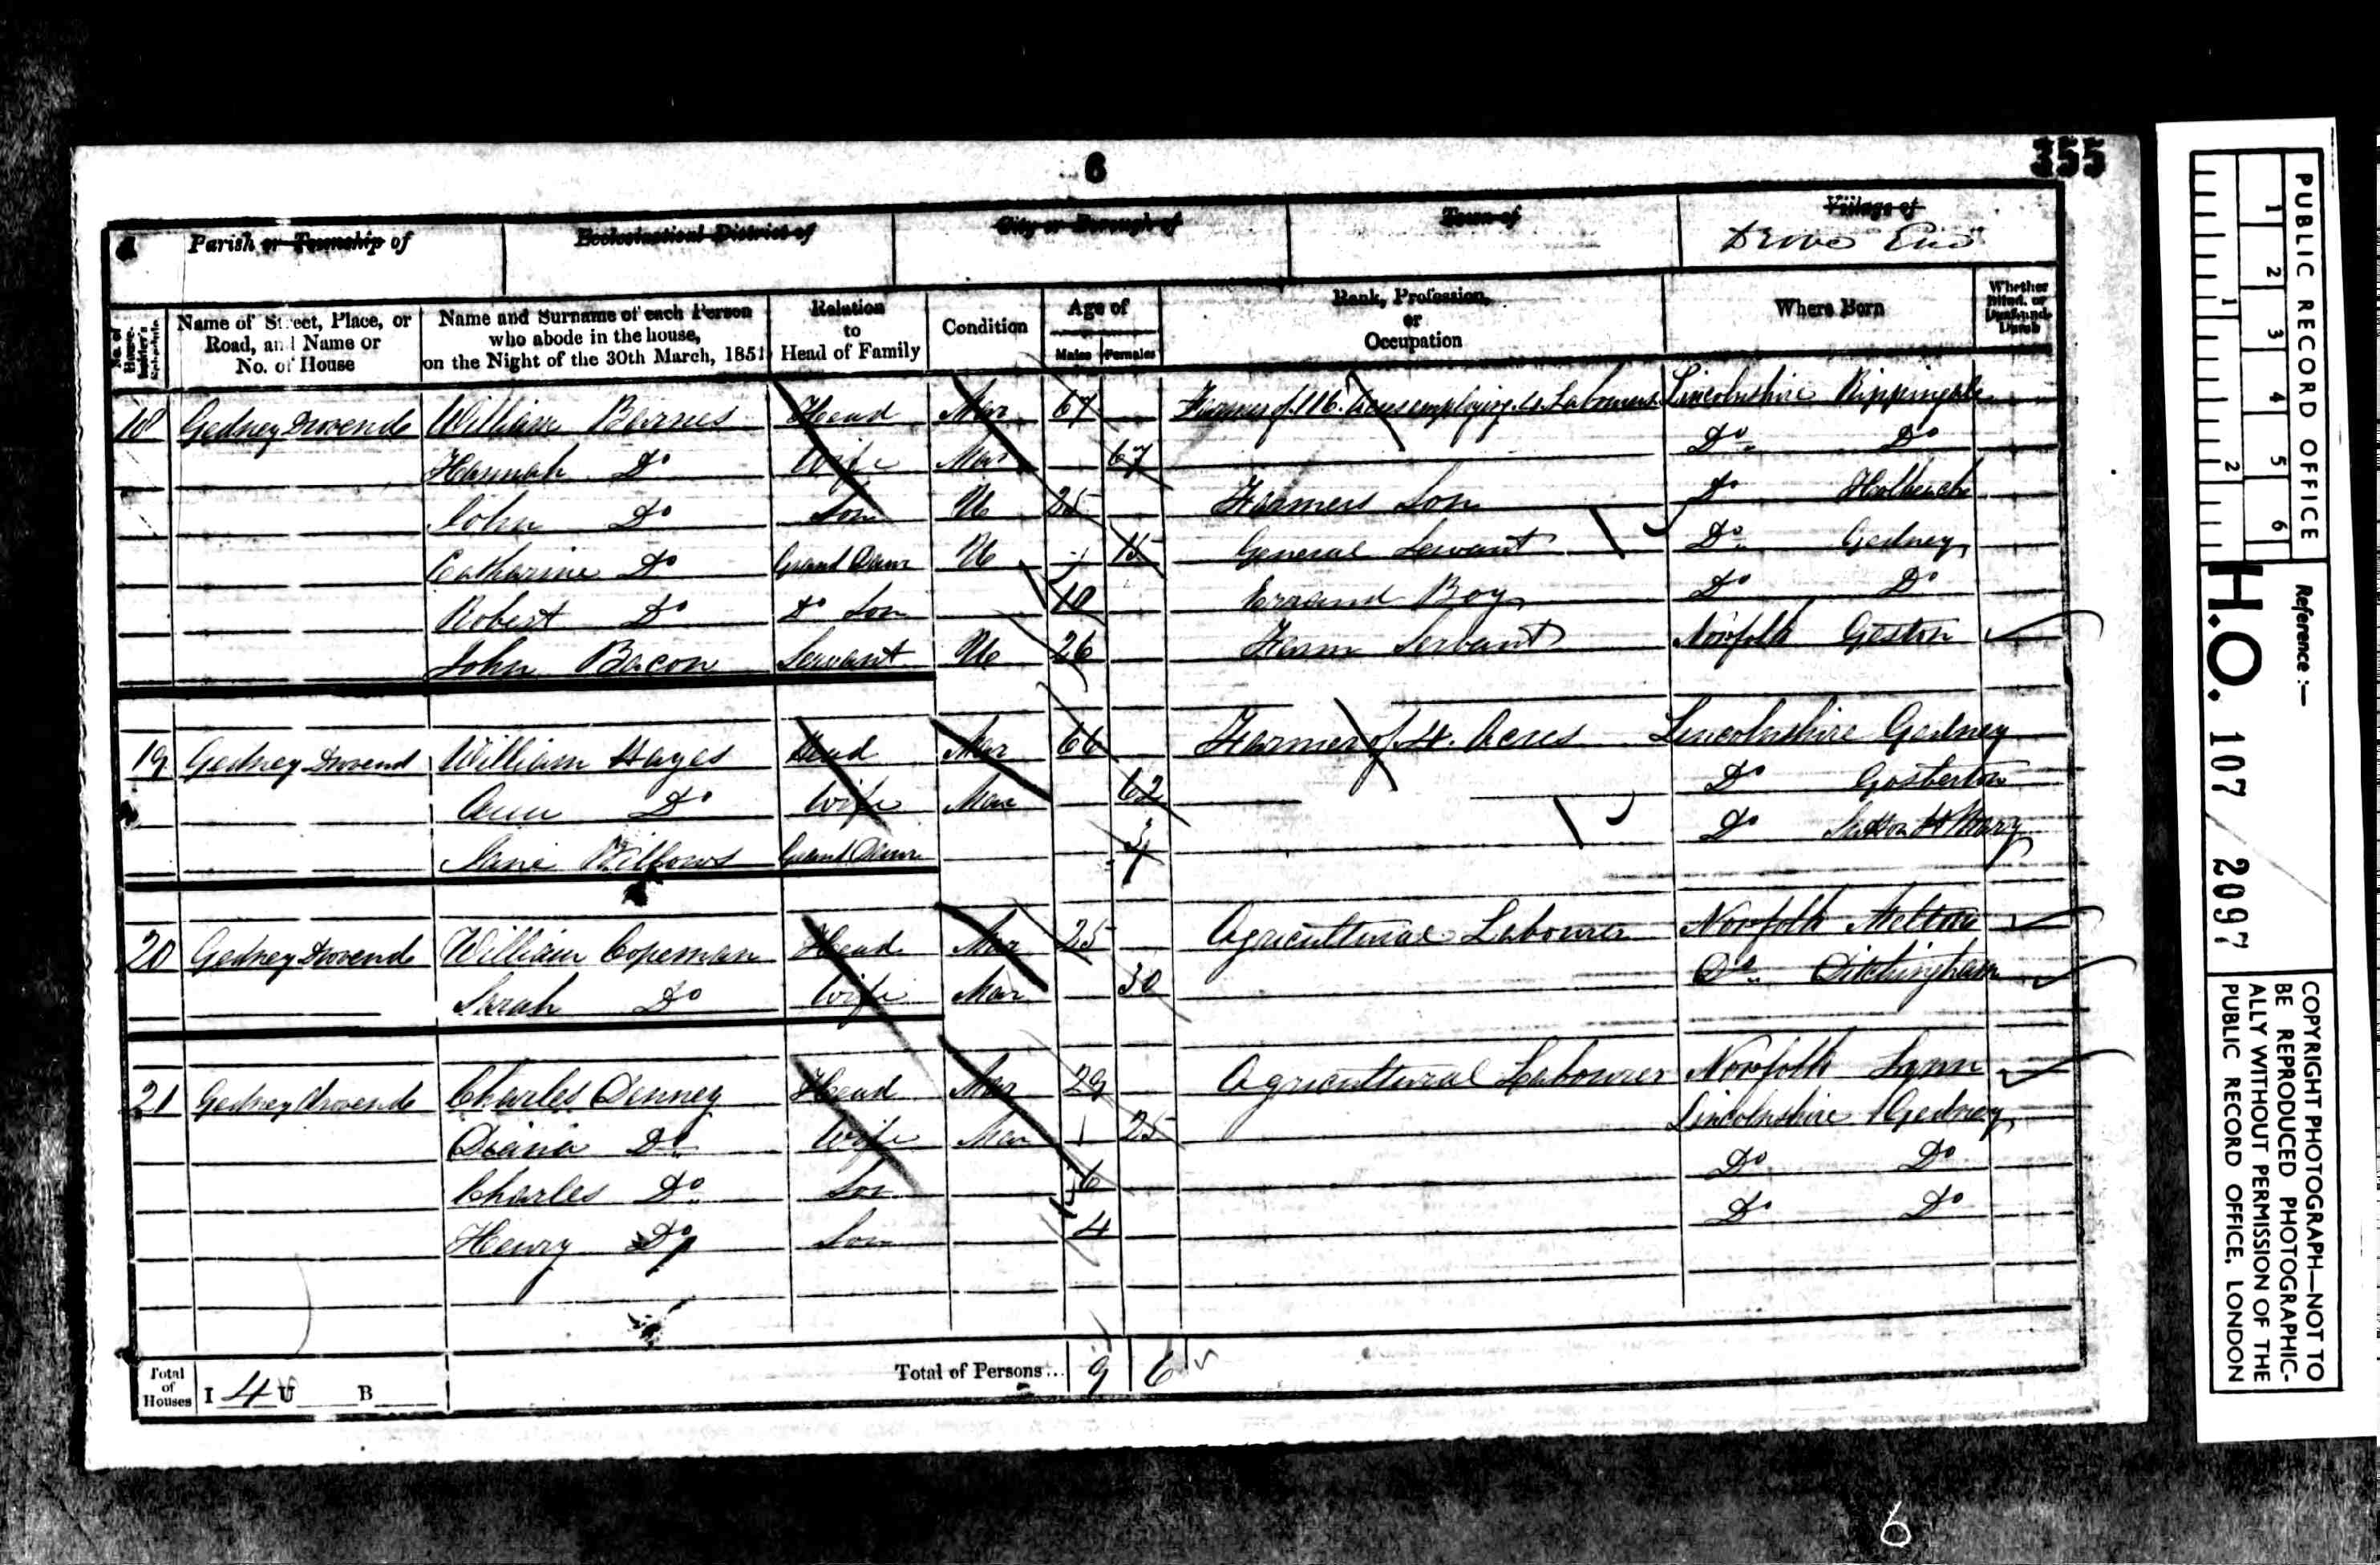 6
355
Parish or Township of Ecclesiastical District of City or Borough of Town of Village of
Drove End
No. of House-holder's Schedule Name of Street, Place, or Road, and Name or No. of House Name and Surname of each Person who abode in the house, on the Night of the 30th March, 1851 Relation to Head of Family Condition Age of Males Females Rank, Profession, or Occupation Where Born Whether Blind, or Deaf-and-Dumb
18 Gedney Drovend William Barnes Head Mar 67 Farmer of 116 Acres employing Labourers Lincolnshire Rippingale
Hannah Do Wife Mar 67 Do Do
John Do Son U 25 Farmers Son Do Holbeach
Catharine Do Grand Daur U 15 General Servant Do Gedney
Robert Do Do Son 10 Errand Boy Do Do
John Bacon Servant U 26 Farm Servant Norfolk
19 Gedney Drovend William Hayes Head Mar 66 Farmer of Acres Lincolnshire Gedney
Ann Do Wife Mar 62 Do Gosberton
Jane Willows Grand Daur Do Sutton St Mary
20 Gedney Drovend William Copeman Head Mar 25 Agricultural Labourer Norfolk Melton
Sarah Do Wife Mar 30 Do Ditchingham
21 Gedney Drovend Charles Denney Head Mar 29 Agricultural Labourer Norfolk Lynn
Diana Do Wife Mar 25 Lincolnshire Gedney
Charles Do Son 6 Do Do
Henry Do Son 4 Do Do
Total of Houses I 4 U B Total of Persons... 9 6
PUBLIC RECORD OFFICE
1 2 3 4 5 6
1 2
Reference:—
H.O. 107 / 2097
COPYRIGHT PHOTOGRAPH—NOT TO
BE REPRODUCED PHOTOGRAPHIC-
ALLY WITHOUT PERMISSION OF THE
PUBLIC RECORD OFFICE, LONDON
6